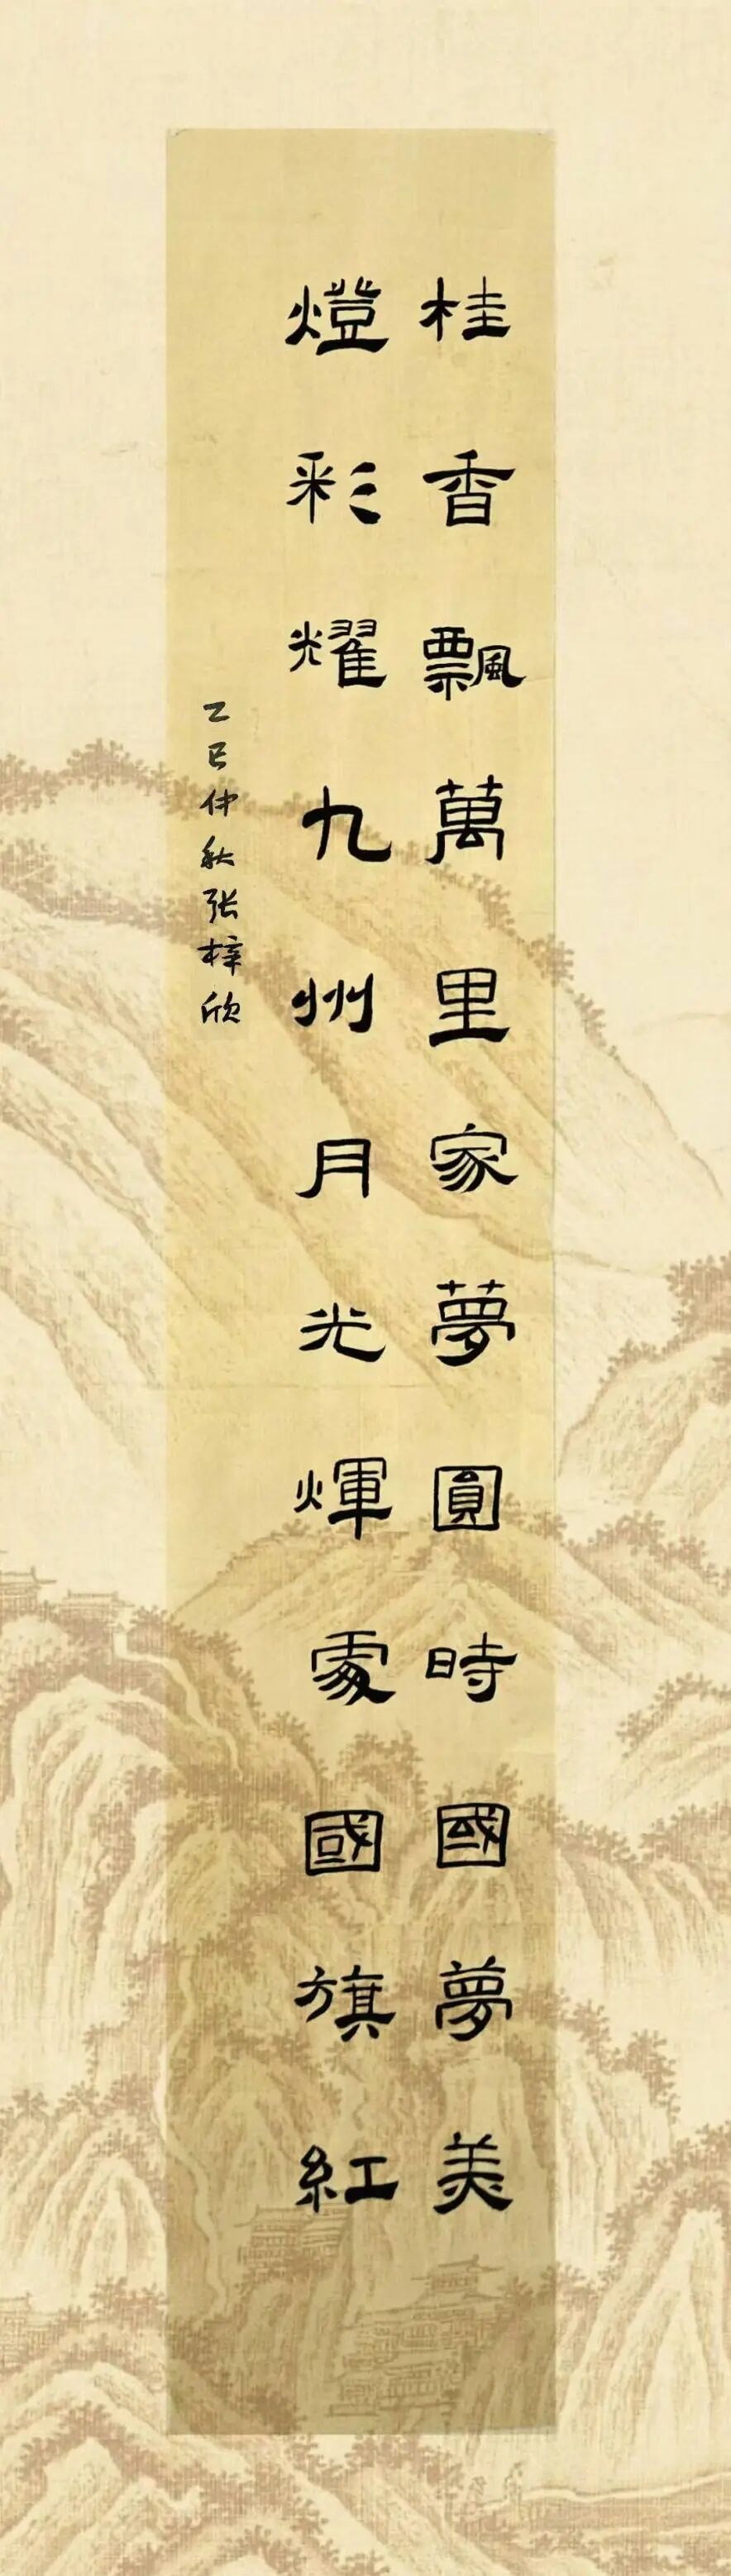 桂香飄萬里家夢圓時國夢美
燈彩耀九州月光輝處國旗紅
乙巳仲秋张梓欣